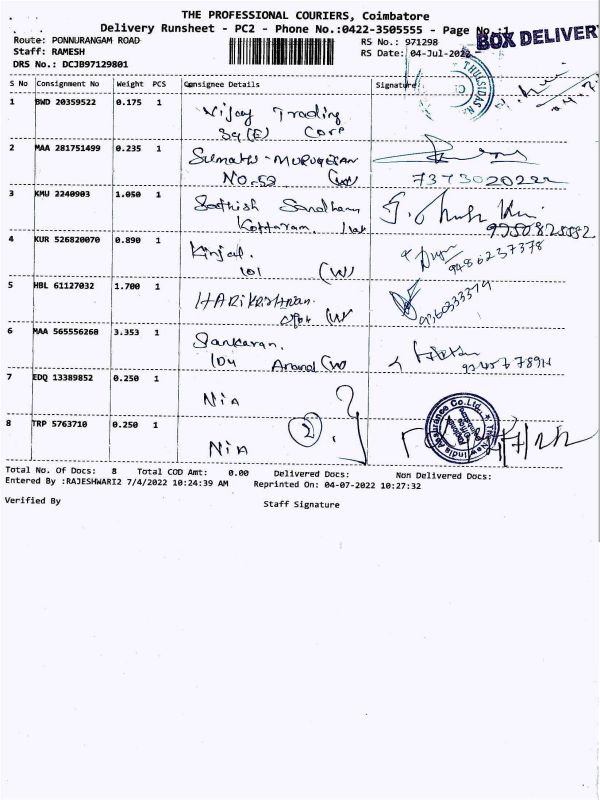 THE PROFESSIONAL COURIERS, Coimbatore
Delivery Runsheet - PC2 - Phone No.:0422-3505555 - Page No.:1
BOX DELIVERY
Route: PONNURANGAM ROAD
RS No.: 971298
Staff: RAMESH
RS Date: 04-Jul-2022
DRS No.: DCJB97129801
S No Consignment No Weight PCS Consignee Details Signature
THULSIDAS
1 BWD 20359522 0.175 1 Vijay Trading
Sq(E) Corp
2 MAA 281751499 0.235 1 Sumathi - MURUGESAN
No.52 (W) 7373020222
3 KMU 2240903 1.050 1 Sathish
Kottaram.
4 KUR 526820070 0.890 1 Kinjal.
101 (W) 9486237378
5 HBL 61127032 1.700 1 HARIKrishnan.
(W) 9360333379
6 MAA 565556260 3.353 1 Sankaran.
104 Anand (W)
7 EDQ 13389852 0.250 1 NiA
8 TRP 5763710 0.250 1 NiA
2
The New India Assurance Co. Ltd.
Total No. Of Docs: 8 Total COD Amt: 0.00 Delivered Docs: Non Delivered Docs:
Entered By :RAJESHWARI2 7/4/2022 10:24:39 AM Reprinted On: 04-07-2022 10:27:32
Verified By
Staff Signature